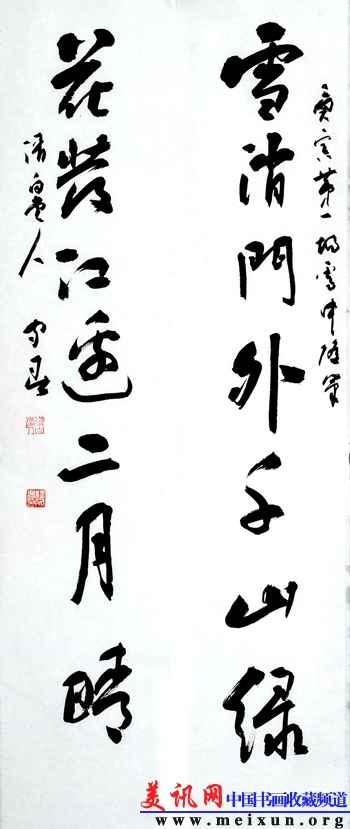 庚寅第一场雪中随军
雪消门外千山绿
花发江边二月晴
清白世人
美讯网 中国书画收藏频道
www.meixun.org